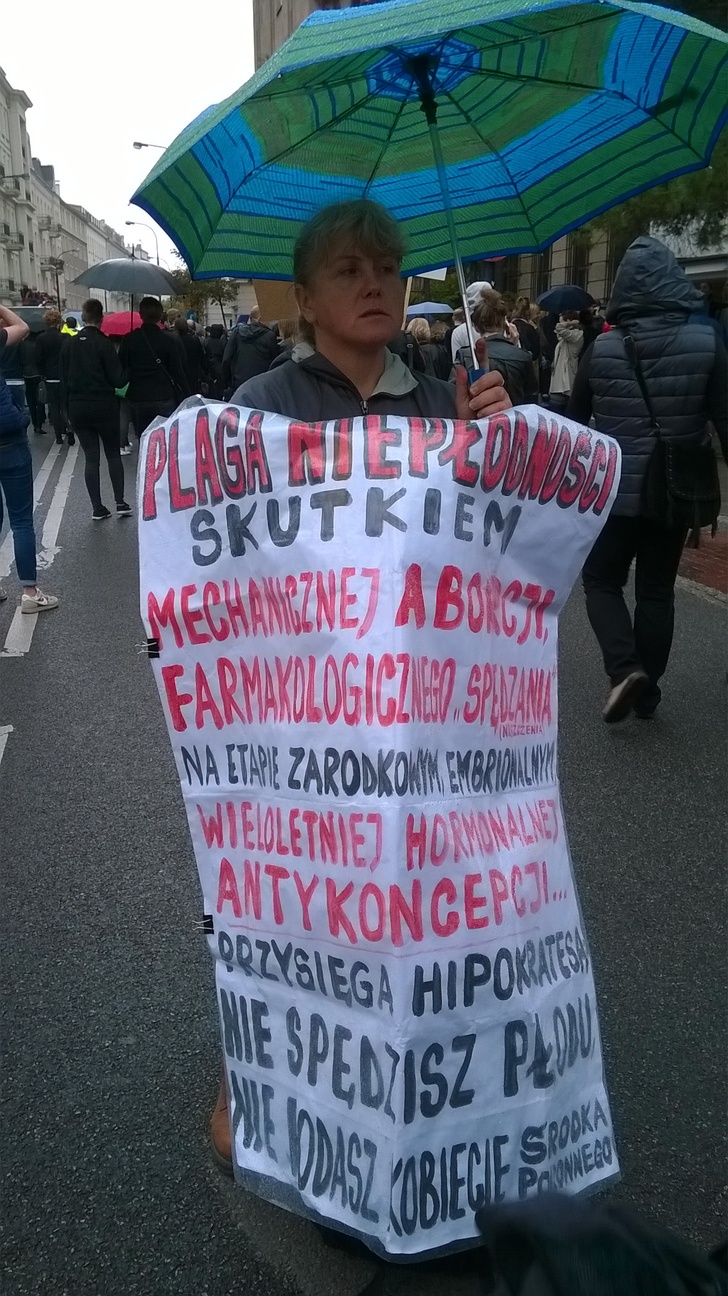 PLAGA NIEPŁODNOŚCI
SKUTKIEM
MECHANICZNEJ ABORCJI,
FARMAKOLOGICZNEGO „SPĘDZANIA"
(NISZCZENIA)
NA ETAPIE ZARODKOWYM, EMBRIONALNYM
WIELOLETNIEJ HORMONALNEJ
ANTYKONCEPCJI...
PRZYSIĘGA HIPOKRATESA
NIE SPĘDZISZ PŁODU,
NIE PODASZ KOBIECIE ŚRODKA
PORONNEGO